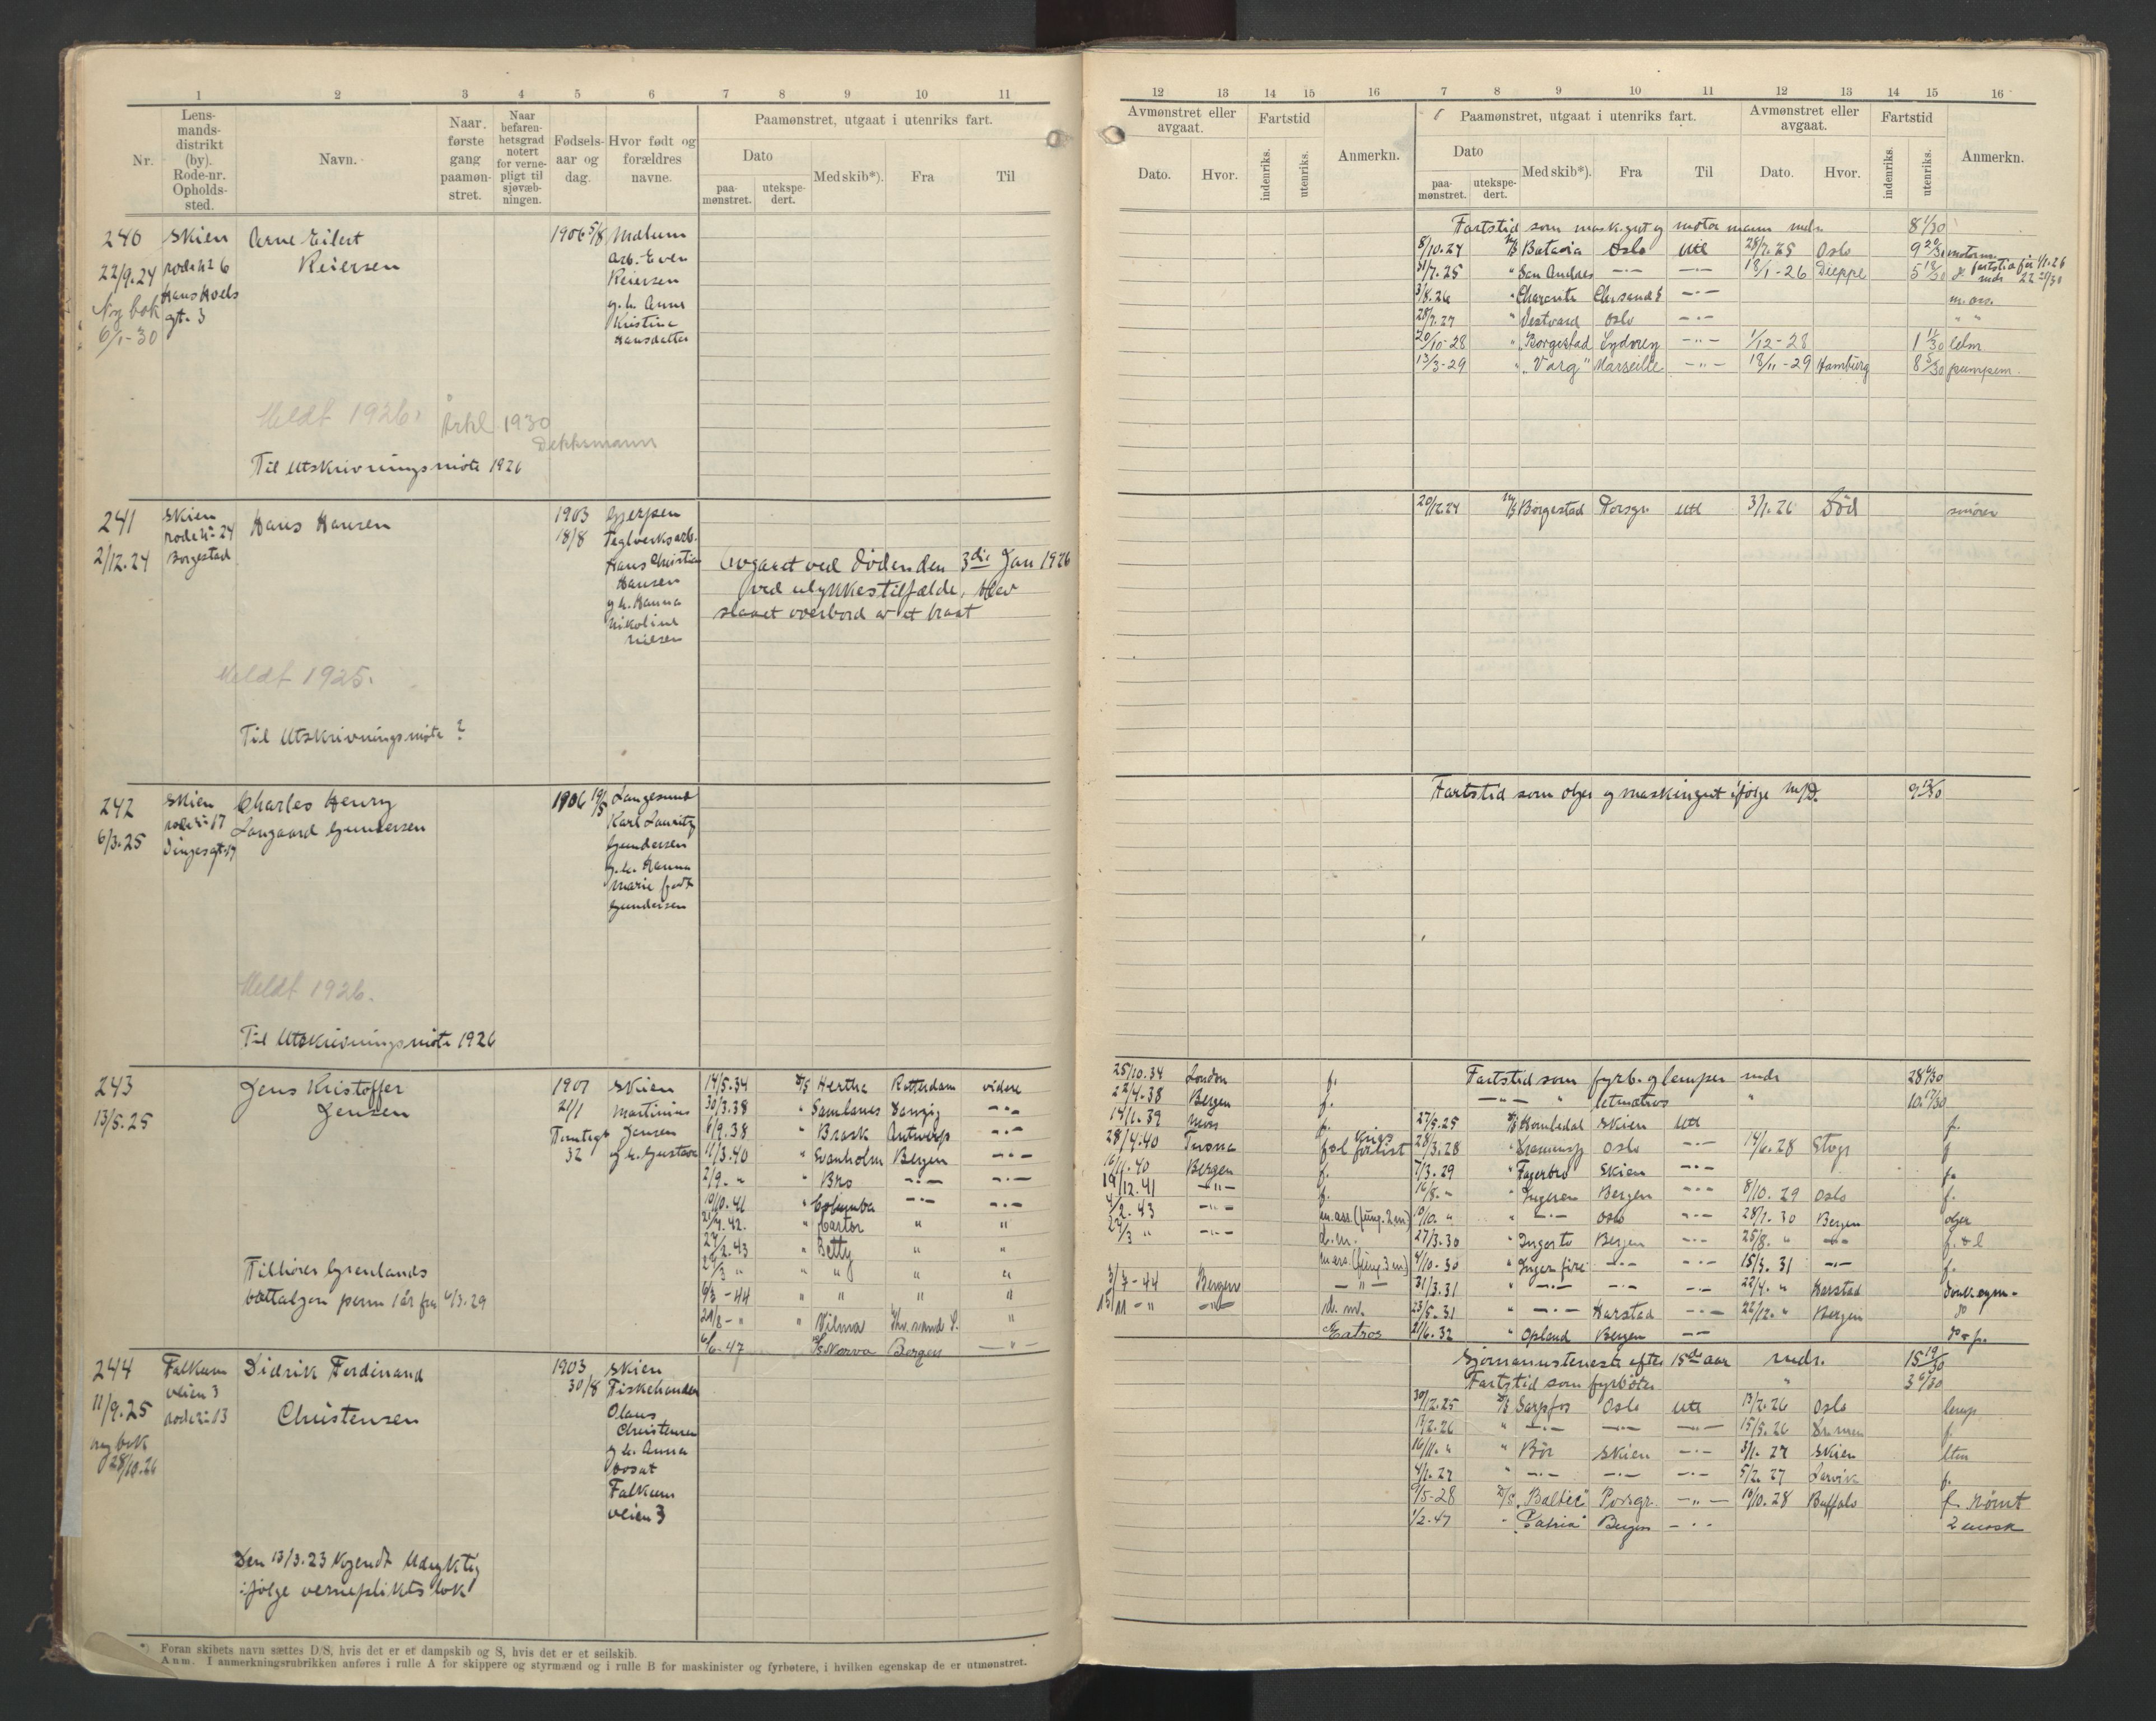 1 2 3 4 5 6 7 8 9 10 11
Nr. Lensmandsdistrikt (by). Rode-nr. Opholdssted. Navn. Naar første gang paamønstret. Naar befarenhetsgrad notert for vernepligt til sjøvæbningen. Fødselsaar og dag. Hvor født og forældres navne. Paamønstret, utgaat i utenriks fart.
Dato Med skib*). Fra Til
paamønstret. utekspedert.
240 Skien Arne Eilert 1906 5/8 Melum
22/9.24 rode nr 6 Reiersen arb. Even
Ny bok Hans Houls Reiersen
6/1-30 gt. 3 g.h. Anne
Kristine
Hansdatter
Meldt 1926. Årkl 1930
Dekksmann
Til Utskrivningsmøte 1926
241 Skien Hans Hansen 1903 Gjerpen
rode nr 24 18/8 Teglverksarb.
2/12.24 Borgestad Hans Christian
Hansen
g.h. Hanna
Nikoline
Nilsen
Avgaaet ved døden den 3die Jan 1926
ved ulykkestilfælde, blev
slaaet overbord av et braat
Meldt 1925.
Til Utskrivningsmøte ?
242 Skien Charles Henry 1906 19/5 Langesund
6/3.25 rode nr 17 Langaard Gundersen Karl Lauritz
Gundersen
g.h. Hanna
Marie født
Gundersen
Meldt 1926.
Til Utskrivningsmøte 1926
243 Jens Kristoffer 1907 Skien 14/5.34 D/S Hertha Rotterdam videre
13/5.25 Jensen 21/1 Martinius 30/3.38 " Samlanes Danzig -"-
Tomtegt Jensen 6/9.38 " Brask Antwerp -"-
32 g.h. Gustava 11/3.40 " Svanholm Bergen -"-
2/9. " " Bro -"- -"-
10/10.41 " Columba -"- -"-
21/7.42. " Castor " "
27/2.43 " Betty " "
27/3 " " " " "
6/3-44 " " " "
29/8-" " Vilma Khr.sand S. "
6/6-47 D/S Narva Bergen -"-
Tilhører Grenlands
battaljon perm 1 år fra 6/3.29
244 Falkum Didrik Ferdinand 1903 Skien
11/9.25 veien 3 Christensen 30/8 Fiskehandler
rode nr 13 Olaus
ny bok Christensen
28/10.26 g.h. Anna
bosat
Falkum
veien 3
Den 13/3.23 Kjendt Udyktig
ifølge vernepliktsbok
*) Foran skibets navn sættes D/S, hvis det er et dampskib og S, hvis det er et seilskib.
Anm. I anmerkningsrubrikken anføres i rulle A for skippere og styrmænd og i rulle B for maskinister og fyrbøtere, i hvilken egenskap de er utmønstret.
12 13 14 15 16 7 8 9 10 11 12 13 14 15 16
Avmønstret eller avgaat. Fartstid Anmerkn. Paamønstret, utgaat i utenriks fart. Avmønstret eller avgaat. Fartstid Anmerkn.
Dato. Hvor. indenriks. utenriks. Dato Med skib*). Fra Til Dato. Hvor. indenriks. utenriks.
paamønstret. utekspedert.
Fartstid som mask.gut og motormann mdr. 8 1/30
8/10.24 M/S Batavia Oslo Utl 28/7.25 Oslo 9 20/30 motorm.
31/7.25 " San Andres -"- -"- 18/1-26 Dieppe 5 18/30 Fartstid før 1/1.26 mdr 22
3/8.26 " Charente Chr.sand S -"- m. ass.
28/7.27 " Vestvard Oslo -"- " "
20/10-28 " "Borgestad Sydney -"- 1/12-28 1 11/30 lelm
13/3-29 " "Varg" Marseille -"- 18/11-29 Hamburg 8 5/30 pumpem.
20/12.24 M/S Borgestad Porsgr. Utl 3/1.26 Død smører
Fartstid som oljer og maskingut ifølge M/B. 9 12/30
25/10.34 London f. Fartstid som fyrb. og lemper mdr 28
22/4.38 Bergen f. -"- " letmatros " 10
14/1.39 Moss f. 27/5.25 D/S Homledal Skien Utl f.
28/4.40 Tromsø krigs forlist 28/3.28 Oslo -"- 14/6.28
16/11.40 Bergen f. 7/3.29 " Fagerbro Skien -"- f.
19/12.41 -"- f. 16/8. " " Ingeren Bergen -"- 8/10.29 Oslo f.
4/2.43 -"- m.ass. (fung. 2 m) 10/10. " " -"- Oslo -"- 28/1.30 Bergen oljer
27/3 " -"- d.m. 27/3.30 " Ingerto Bergen -"- 25/8. " -"- f. & l
m.ass. (fung 3 m) 4/10-30 " Inger fire -"- -"- 15/3.31 -"- f.
3/7-44 Bergen -"- 31/3.31 " -"- -"- -"- 22/4. " Harstad
15/11-" -"- d.m. 23/5.31 " -"- Harstad -"- 22/12. " Bergen do
21/6.32 " Opland Bergen -"-
Sjømannstjeneste efter 15de aar mdr. 15 19/30
Fartstid som fyrbøter " 3
30/12.25 D/S Sarpfos Oslo Utl 13/2.26 Oslo lemp
13/2.26 " -"- -"- -"- 15/5.26 Dr.men f.
16/11. " " Bør Skien -"- 3/1.27 Skien
4/1.27 " -"- -"- -"- 5/2.27 Larvik f.
9/5-28 D/S "Baltic" Porsgr. -"- 10/10.28 Buffalo f. rømt
1/2.47 " "Patria" Bergen -"- 2 mask